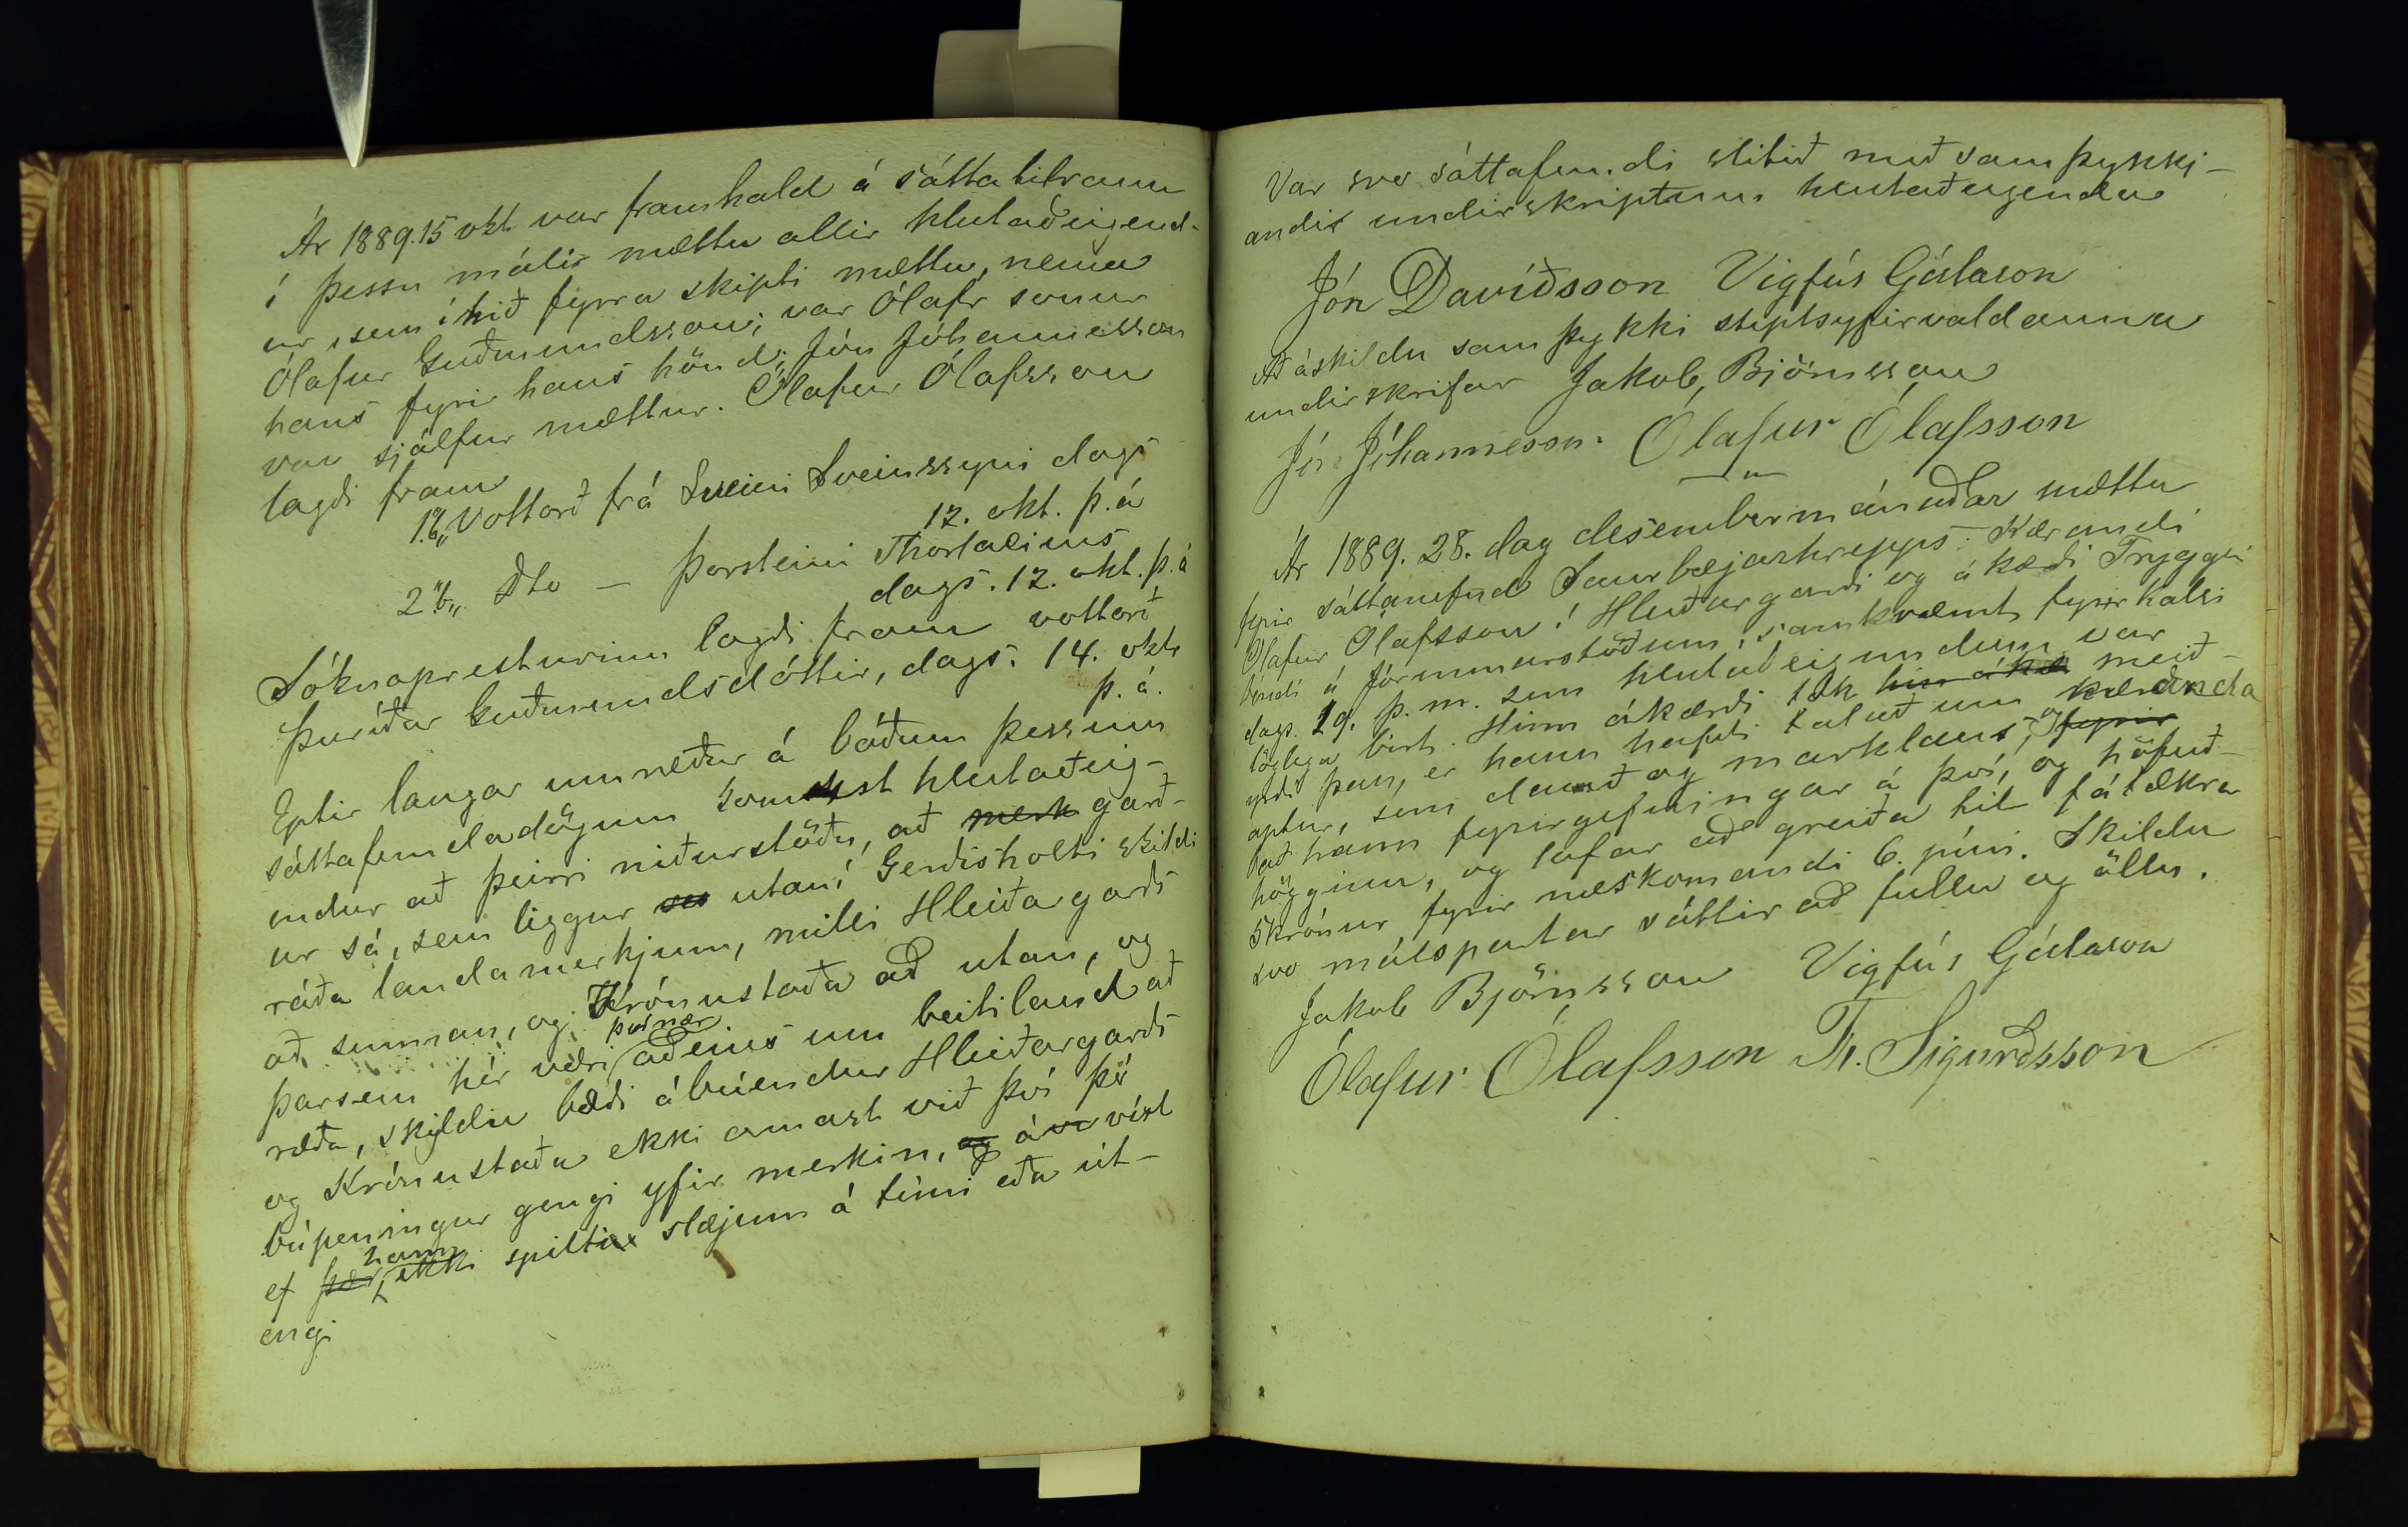 Ár 1889. 15 okt var framhald á sáttatilraun
í þessu máli; mættu allir hlutaðeigend-
ur, sem í hið fyrra skipti mættu, nema
Ólafur Guðmundsson; var Ólafr sonur
hans fyrir hans hönd; Jón Jóhannesson
var sjálfur mættur. Ólafur Ólafsson
lagði fram
1. Vottorð frá Sveini Sveinssyni dags
12. okt. þ. á
2 Dto — Þorsteini Thorlacius
dags. 12. okt. þ. á
Sóknapresturinn lagði fram vottorð
Þuríðar Guðmundsdóttir, dags. 14. okt
þ. á.
Eptir langar umræður á báðum þessum
sáttafundadögum komust hlutaðeig-
endur að þeirri niðurstöðu, að merk garð-
ur sá, sem liggur utaní Gerðisholti skildi
ráða landamerkjum, milli Hleiðagarðs
að sunnan, og Krónustaða að utan, og
þarsem hér væri þvínær aðeins um beitiland að
ræða, skyldu bæði ábúendur Hleiðargarðs
og Krónustaða ekki amast við því þó
búpeningur gengi yfir merkin, og á víxl
ef þær hann ekki spilti slægjum á túni eða út-
engi
Var svo sáttafundi slitið með samþykkj-
andis undirskriptum hlutaðeigenda
Jón Davíðsson Vigfús Gíslason
Að áskildu samþykki stiptsyfirvaldanna
undirskrifar Jakob Björnsson
Jón Jóhannesson. Ólafur Ólafsson
Ár 1889. 28. dag desembermánuðar mættu
fyrir sáttanefnd Saurbæjarhrepps: Kærandi
Ólafur Ólafsson í Hleiðargarði og ákærði Tryggvi
bóndi á Jórunnarstöðum, samkvæmt fyrirkalli
dags. 19. þ. m. sem hlutaðeigundum var
löglega birt. Hinn ákærði tók hin ákæ meið-
yrði þau, er hann hafði talað um kæranda
aptur, sem dauð og marklaus, og fyrir
bað hann fyrirgefningar á því, og höfuð-
högginu, og lofar að greiða til fátækra
5 krónur, fyrir næskomandi 6. júní. Skildu
svo málspartar sáttir að fullu og öllu.
Jakob Björnsson Vigfús Gíslason
Ólafur Ólafsson Tr. Sigurðsson